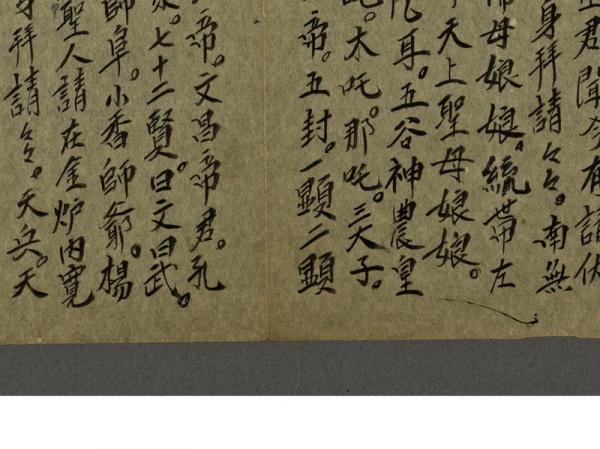 君聞今有請伏
身拜請々々。南無
母娘娘。統帶左
天上聖母娘娘。
耳。五谷神農皇
帝。五封。一顕二顕
木吒。那吒。三大子。
帝。文昌帝君。孔
七十二賢。曰文曰武。
師阜。小香師爺。楊
聖人請在金炉内寬
身拜請々々。天兵。天